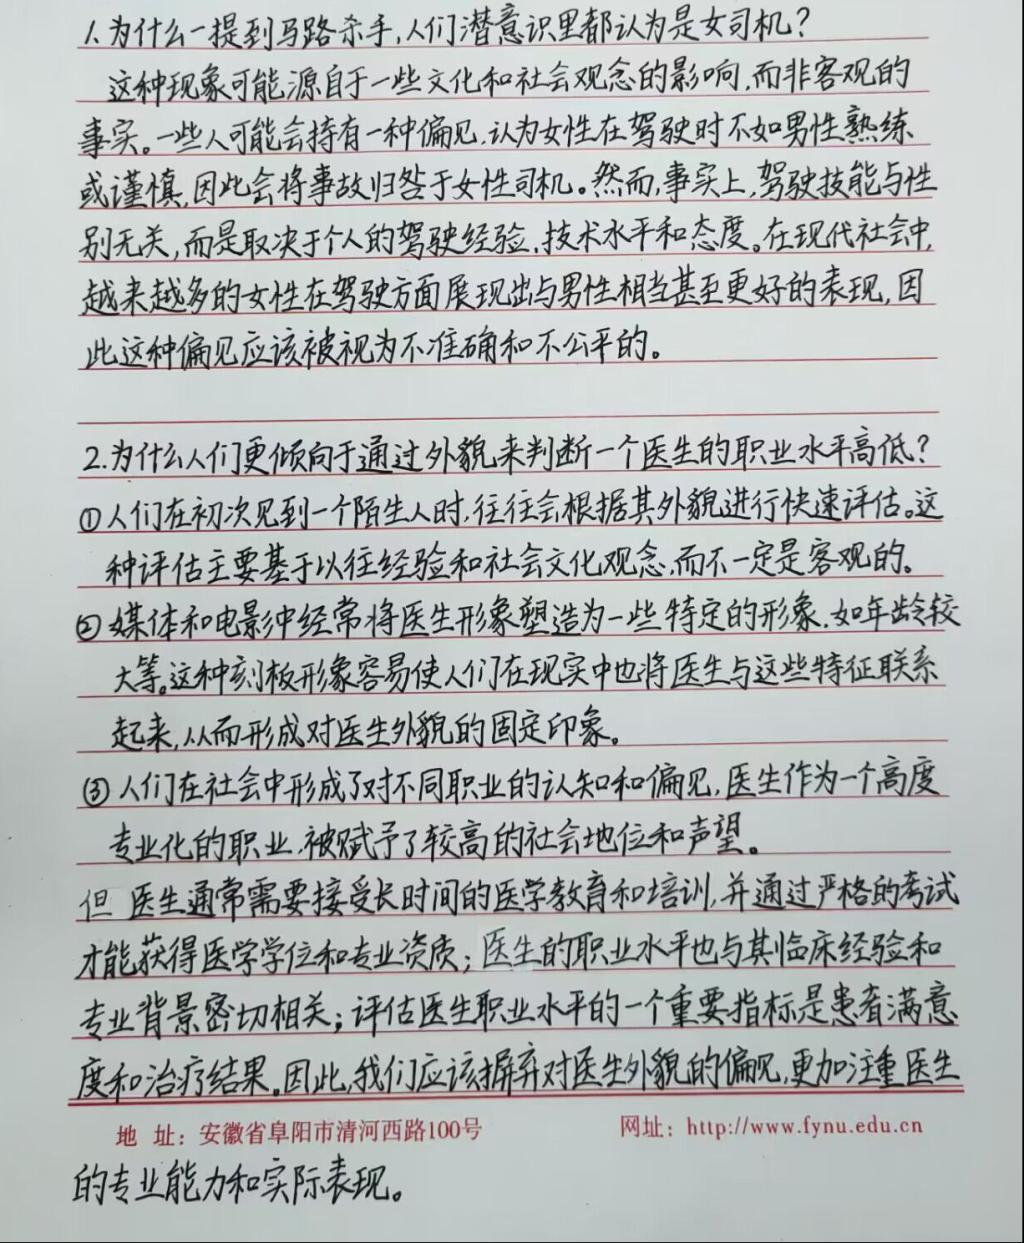 1.为什么一提到马路杀手,人们潜意识里都认为是女司机?
这种现象可能源自于一些文化和社会观念的影响,而非客观的
事实。一些人可能会持有一种偏见,认为女性在驾驶时不如男性熟练
或谨慎,因此会将事故归咎于女性司机。然而,事实上,驾驶技能与性
别无关,而是取决于个人的驾驶经验、技术水平和态度。在现代社会中,
越来越多的女性在驾驶方面展现出与男性相当甚至更好的表现,因
此这种偏见应该被视为不准确和不公平的。
2.为什么人们更倾向于通过外貌来判断一个医生的职业水平高低?
①人们在初次见到一个陌生人时,往往会根据其外貌进行快速评估。这
种评估主要基于以往经验和社会文化观念,而不一定是客观的。
②媒体和电影中经常将医生形象塑造为一些特定的形象,如年龄较
大等。这种刻板形象容易使人们在现实中也将医生与这些特征联系
起来,从而形成对医生外貌的固定印象。
③人们在社会中形成了对不同职业的认知和偏见,医生作为一个高度
专业化的职业,被赋予了较高的社会地位和声望。
但 医生通常需要接受长时间的医学教育和培训,并通过严格的考试
才能获得医学学位和专业资质;医生的职业水平也与其临床经验和
专业背景密切相关;评估医生职业水平的一个重要指标是患者满意
度和治疗结果。因此,我们应该摒弃对医生外貌的偏见,更加注重医生
地 址:安徽省阜阳市清河西路100号 网址:http://www.fynu.edu.cn
的专业能力和实际表现。